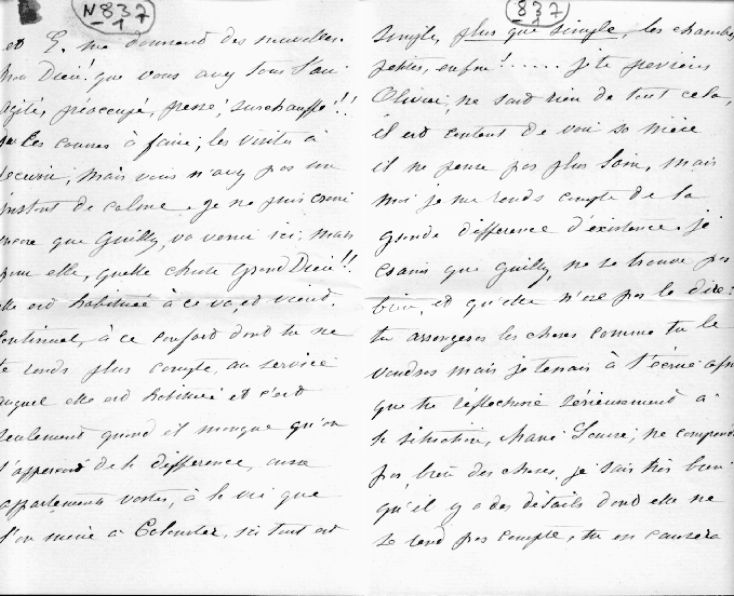 N 837
1
et E. me donnent des nouvelles.
Mon Dieu! que vous avez tous l'air
agité, préoccupé, pressé, surchauffé!!!
Les courses à faire, les visites à
recevoir, mais vous n'avez pas un
instant de calme. Je ne puis croire
encore que Guilly, va venir ici, mais
pour elle, quelle chute Grand Dieu!!
elle est habituée à ce va, et vient,
continuel, à ce confort dont tu ne
te rends plus compte, au service
auquel elle est habituée et c'est
seulement quand il manque qu'on
s'aperçoit de la différence, aux
appartements vastes, à la vie que
l'on mène à ici tout est
837
1
simple, plus que simple, les chambres
petites, enfin! ..... je te préviens
Olivier, ne sait rien de tout cela,
il est content de voir sa mère
il ne pense pas plus loin, mais
moi je me rends compte de la
grande différence d'existence. je
crains que Guilly, ne se trouve pas
bien, et qu'elle n'ose pas le dire:
tu arrangeras les choses comme tu le
voudras mais je tenais à t'écrire afin
que tu réfléchisse sérieusement à
la situation, Marie Louise, ne comprend
pas bien des choses, je sais très bien
qu'il y a des détails dont elle ne
se rend pas compte, tu en causera